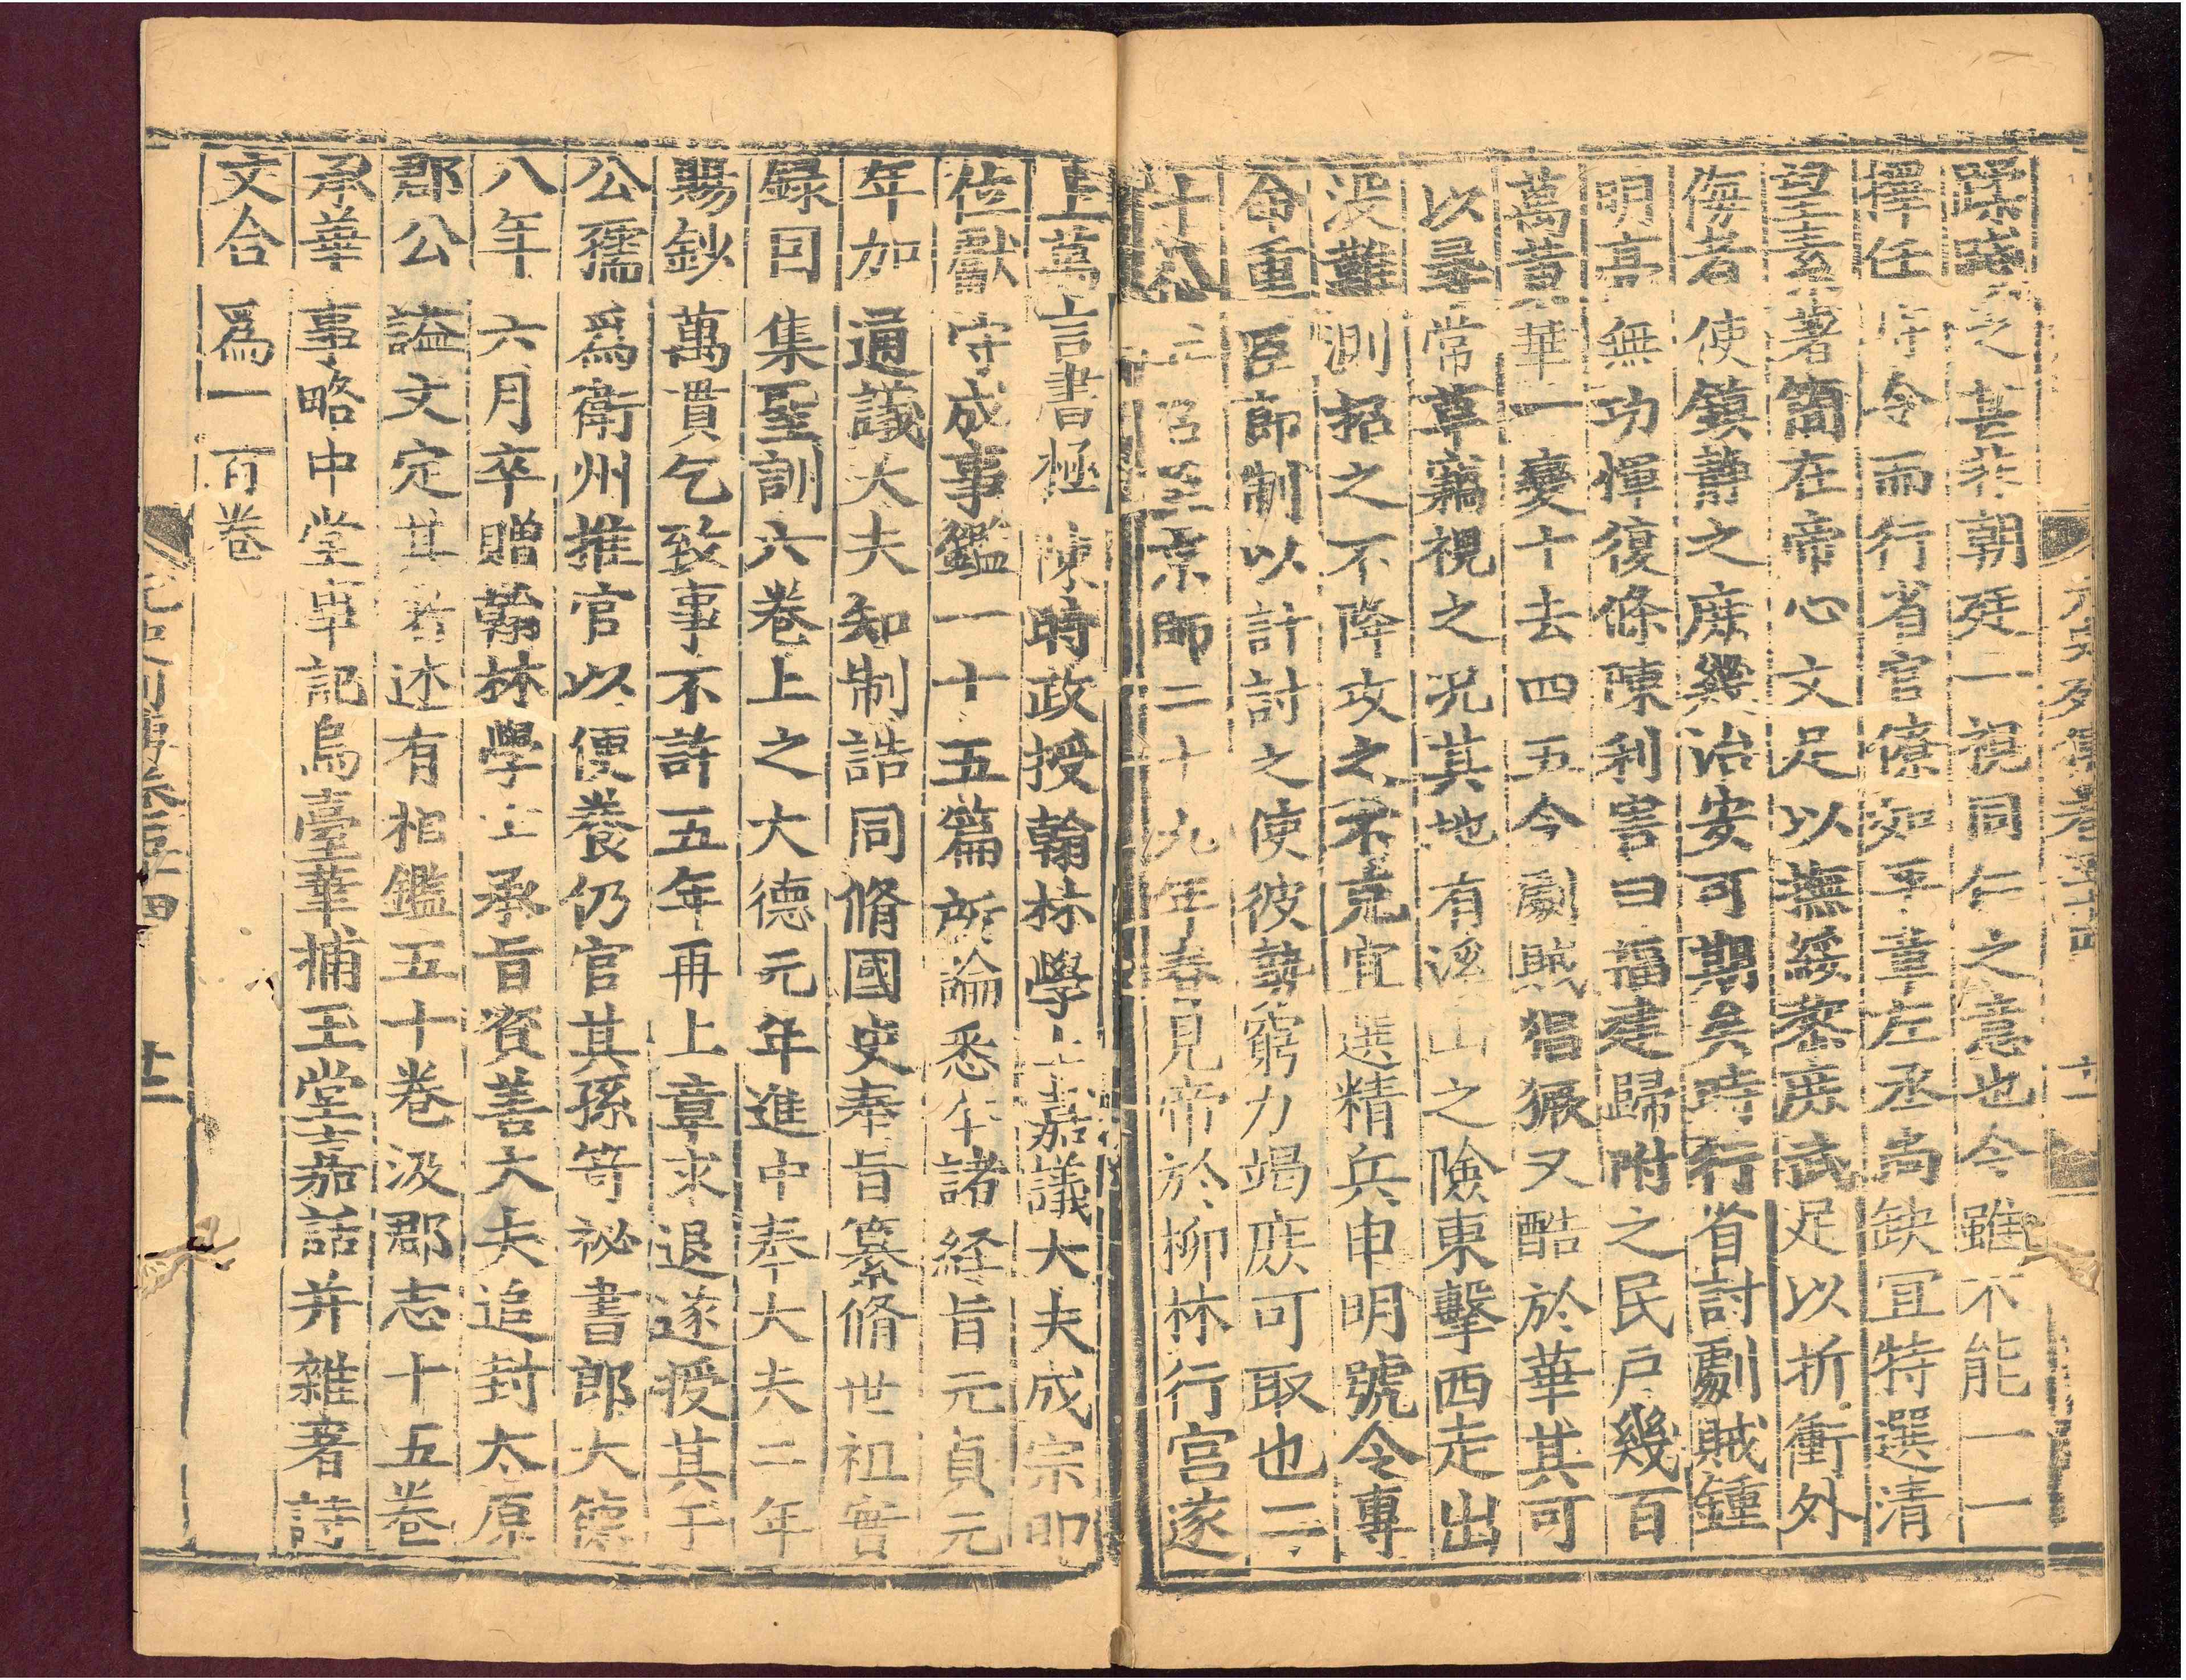 蹂踐之甚非朝廷一視同仁之意也今雖不能一一
擇任守令而行省官僚如平章左丞尚缺宜特選清
望素著簡在帝心文足以撫綏黎庶武足以折衝外
侮者使鎮靜之庶幾治安可期矣時行省討劇賊鍾
明亮無功惲復條陳利害曰福建歸附之民戶幾百
萬黄華一變十去四五今劇賊猖獗又酷於華其可
以尋常草竊視之况其地有溪山之險東擊西走出
没難測招之不降攻之不克宜選精兵申明號令專
命重臣節制以計討之使彼勢窮力竭庶可取也二
十八年召至京師二十九年春見帝於柳林行宫遂
上萬言書極陳時政授翰林學士嘉議大夫成宗即
位獻守成事鑑一十五篇所論悉本諸経旨元貞元
年加通議大夫知制誥同脩國史奉旨纂脩世祖實
録因集聖訓六卷上之大德元年進中奉大夫二年
賜鈔萬貫乞致事不許五年再上章求退遂授其子
公孺為衛州推官以便養仍官其孫笴祕書郎大德
八年六月卒贈翰林學士承旨資善大夫追封太原
郡公謚文定其著述有相鑑五十卷汲郡志十五卷
承華事略中堂事記烏臺筆補玉堂嘉話并雜著詩
文合爲一百卷
元史列傳卷五十四 十二